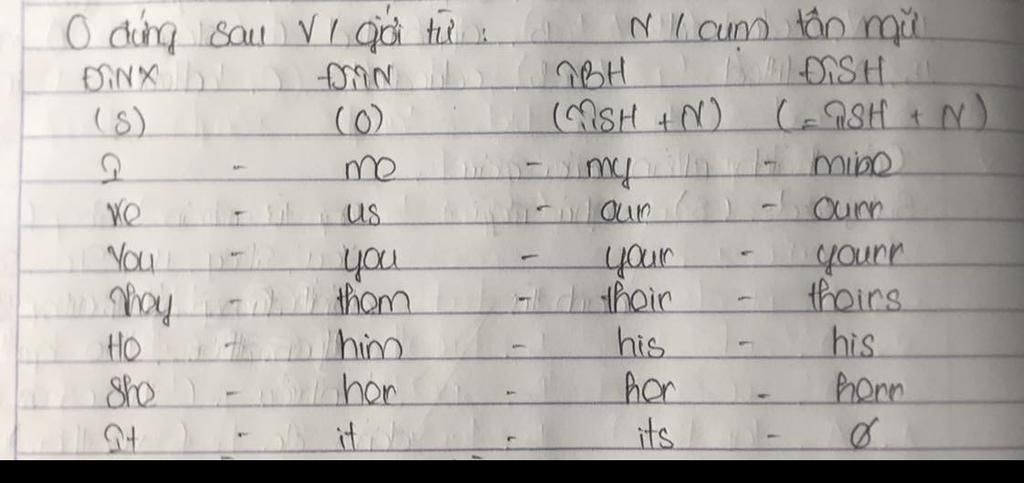 O đứng sau V / giới từ : N / cụm tân ngữ
ĐTNX ĐTTN TTSH ĐTSH
(S) (O) (TTSH + N) (= TTSH + N)
I - me - my - mine
We - us - our - ours
You - you - your - yours
They - them - their - theirs
He - him - his - his
She - her - her - hers
It - it - its - Ø